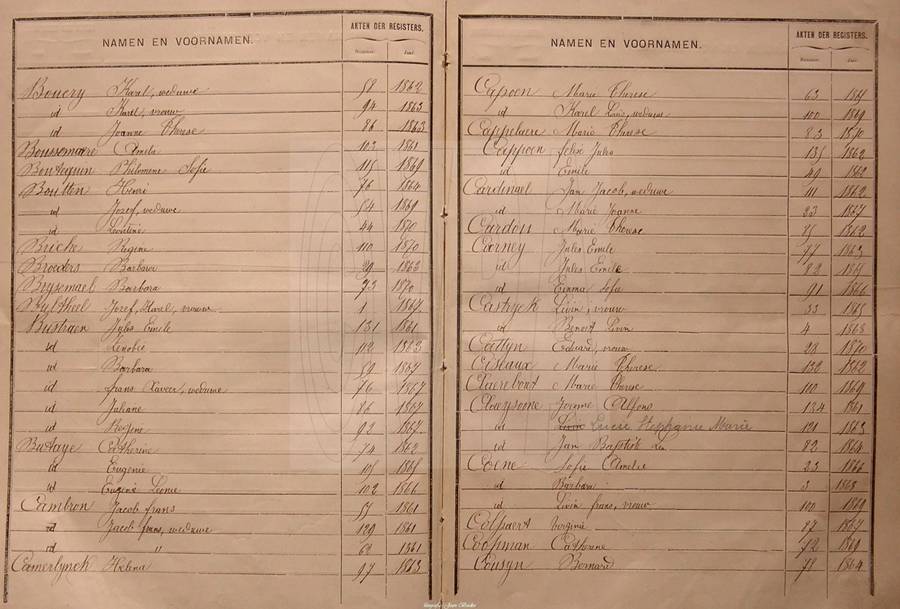 NAMEN EN VOORNAMEN. AKTEN DER REGISTERS.
Boucry Karel, weduwe 58 1862
id Karel, vrouw 94 1863
id Joanne Therese 86 1863
Boussemaere Amelia 103 1861
Philomene Sofie 115 1869
Boutten Henri 76 1864
id Jozef, weduwe 54 1869
id Leontine 44 1870
Bricke Regine 110 1870
Broeders Barbara 29 1863
Brysemael Barbara 73 1870
Jozef, Karel, vrouw 1 1867
Bustraen Jules Emile 131 1861
id Zenobie 112 1863
id Barbara 59 1867
id frans Xavier, weduwe 76 1867
id Juliane 86 1867
id Regine 92 1867
Butaye Catherine 74 1862
id Eugenie 105
id Eugene Leonie 102 1866
Cambron Jacob frans 51 1861
id Jacob frans, weduwe 129 1861
id " 62 1861
Camerlynck Helena 97 1863
NAMEN EN VOORNAMEN. AKTEN DER REGISTERS.
Capoen Marie Therese 63
id Karel Louis, weduwe 100 1869
Cappelaere Marie Therese 83 1870
Cappoen felix Jules 135 1862
id Emile 49 1862
Cardinael Jan Jacob, weduwe 111 1862
id Marie Joanne 23 1867
Cardon Marie Therese 85 1862
Carney Jules Emile 77 1863
id Jules Emile 82
id Emma Sofie 91 1866
Castryck Livin, vrouw 33
id Benoit Livin 4 1868
Cattyn Eduard, vrouw 28 1870
Ciseaux Marie Therese 132 1862
Claerebout Marie Therese 110 1869
Claeysoone Jerome Alfons 134 1861
id Lucie Stephanie Marie 121 1863
id Jan Baptist 82 1864
Coene Sofie Amelie 23 1866
id Barbara 3 1868
id Livin frans, vrouw 100 1869
Colpaert Virginie 87 1867
Coopman Catherine 72 1869
Cousyn Bernard 78 1864